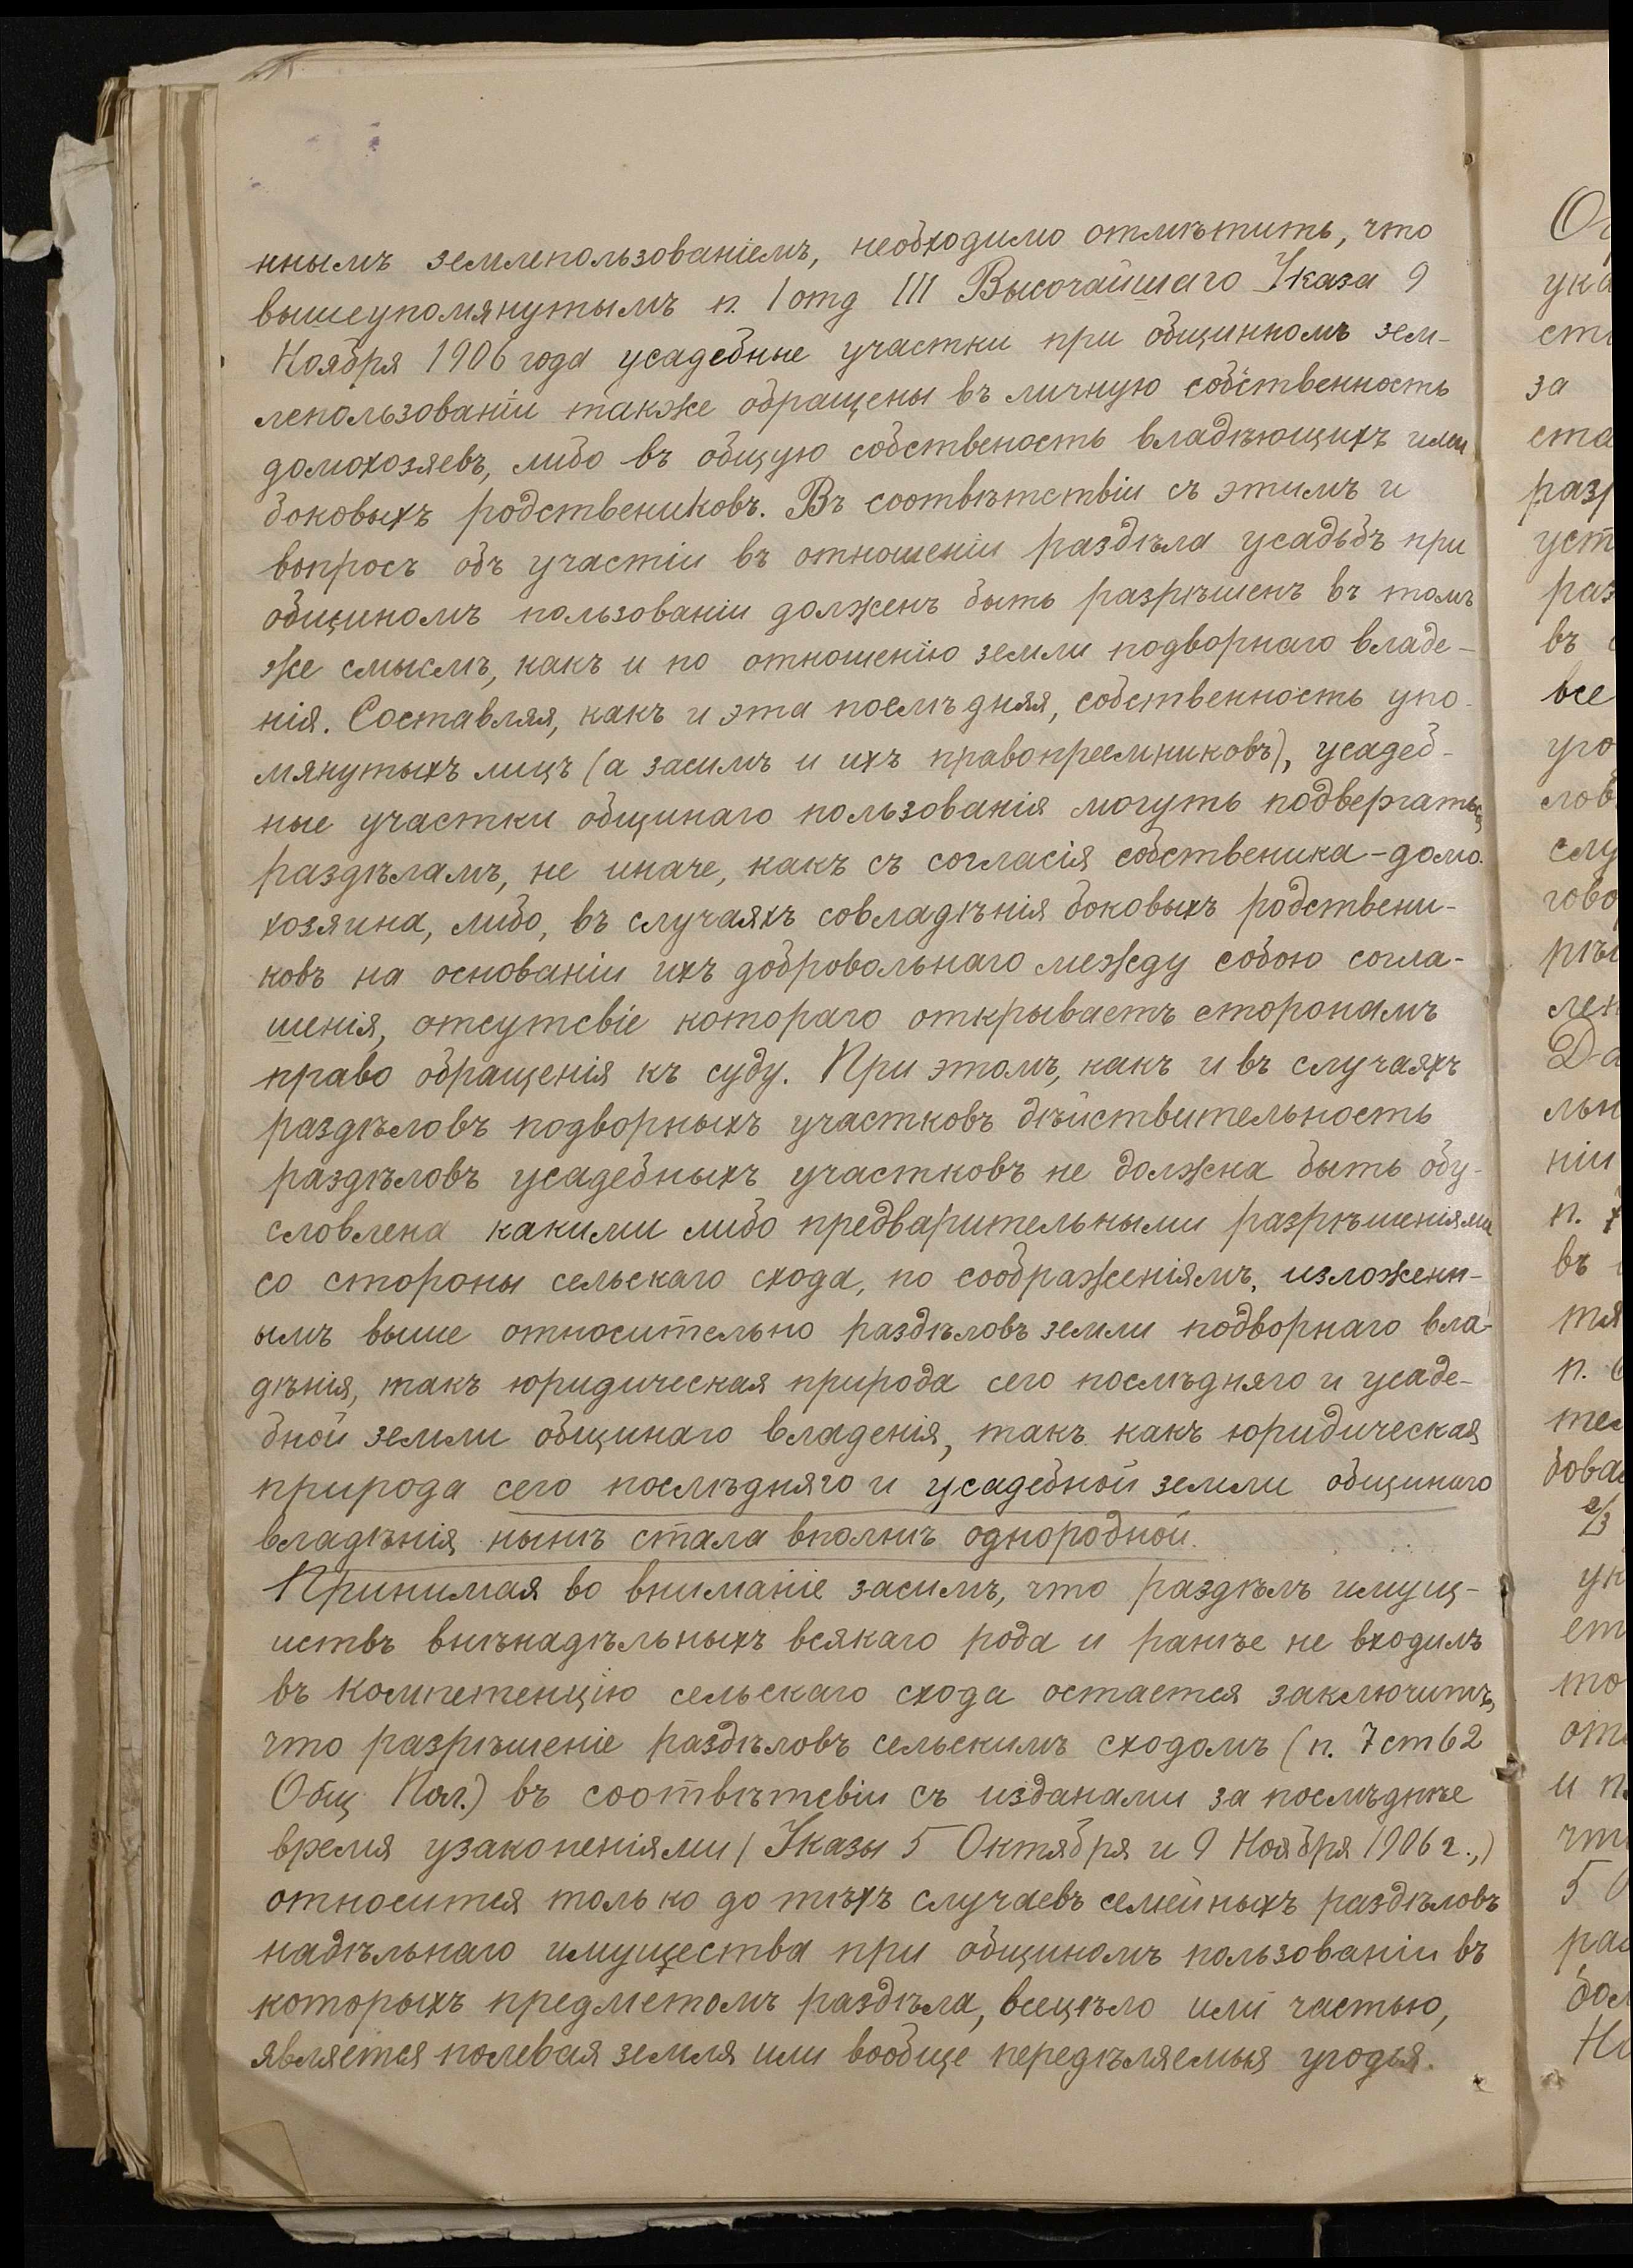 ннымъ землепользованіемъ, необходимо отмѣтить, что
вышеупомянутымъ п. 1 отд III Высочайшаго Указа 9
Ноября 1906 года усадебные участки при общинномъ зем-
лепользованіи также обращены въ личную собственность
домохозяевъ, либо въ общую собственость владѣющихъ ими
боковыхъ родствениковъ. Въ соотвѣтствіи съ этимъ и
вопросъ объ участіи въ отношеніи раздѣла усадьбъ при
общиномъ пользованіи долженъ быть разрѣшенъ въ томъ
же смыслѣ, какъ и по отношенію земли подворнаго владе-
нія. Составляя, какъ и эта послѣдняя, собственность упо-
мянутыхъ лицъ (а засимъ и ихъ правопреемниковъ), усадеб-
ные участки общинаго пользованія могутъ подвергаться
раздѣламъ, не иначе, какъ съ согласія собственика-домо-
хозяина, либо, въ случаяхъ совладѣнія боковыхъ родствени-
ковъ на основаніи ихъ добровольнаго между собою согла-
шенія, отсутсвіе котораго открываетъ сторонамъ
право обращенія къ суду. При этомъ, какъ и въ случаяхъ
раздѣловъ подворныхъ участковъ дѣйствительность
раздѣловъ усадебныхъ участковъ не должна быть обу-
словлена какими либо предварительными разрѣшеніями
со стороны сельскаго схода, по соображеніямъ, изложенн-
ымъ выше относительно раздѣловъ земли подворнаго вла-
дѣнія, такъ юридическая природа сего послѣдняго и усаде-
бной земли общинаго владенія, такъ какъ юридическая
природа сего послѣдняго и усадебной земли общинаго
владѣнія нынѣ стала вполнѣ однородной.
Принимая во вниманіе засимъ, что раздѣлъ имущ-
иствъ внѣнадѣльныхъ всякаго рода и ранѣе не входилъ
въ компетенцію сельскаго схода остается заключить,
что разрѣшеніе раздѣловъ сельскимъ сходомъ (п. 7 ст 62
Общ Пол.) въ соотвѣтсвіи съ изданами за послѣднѣе
время узаконеніями (Указы 5 Октября и 9 Ноября 1906 г.,)
относится только до тѣхъ случаевъ семейныхъ раздѣловъ
надѣльнаго имущества при общиномъ пользованіи въ
которыхъ предметомъ раздѣла, всецѣло или частью,
является полевая земля или вообще передѣляемыя угодья.